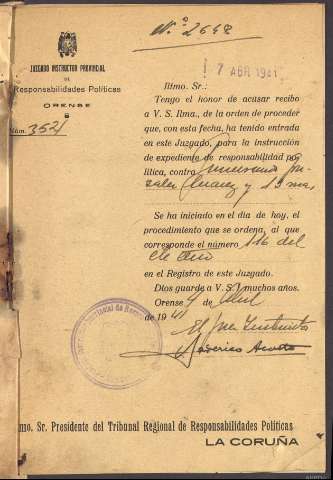 Nº 2648
JUZGADO INSTRUCTOR PROVINCIAL
DE
Responsabilidades Políticas
ORENSE
Núm. 352
7 ABR 1941
Iltmo. Sr.:
Tengo el honor de acusar recibo
a V. S. Ilma., de la orden de proceder
que, con esta fecha, ha tenido entrada
en este Juzgado, para la instrucción
de expediente de responsabilidad po
lítica, contra
Alvarez y 13 mas
Se ha iniciado en el dia de hoy, el
procedimiento que se ordena, al que
corresponde el número 116 del
en el Registro de este Juzgado.
Dios guarde a V. S. muchos años.
Orense 4 de Abril
de 1941
El Juez Instructor
Federico Acosta
mo. Sr. Presidente del Tribunal Regional de Responsabilidades Políticas
LA CORUÑA